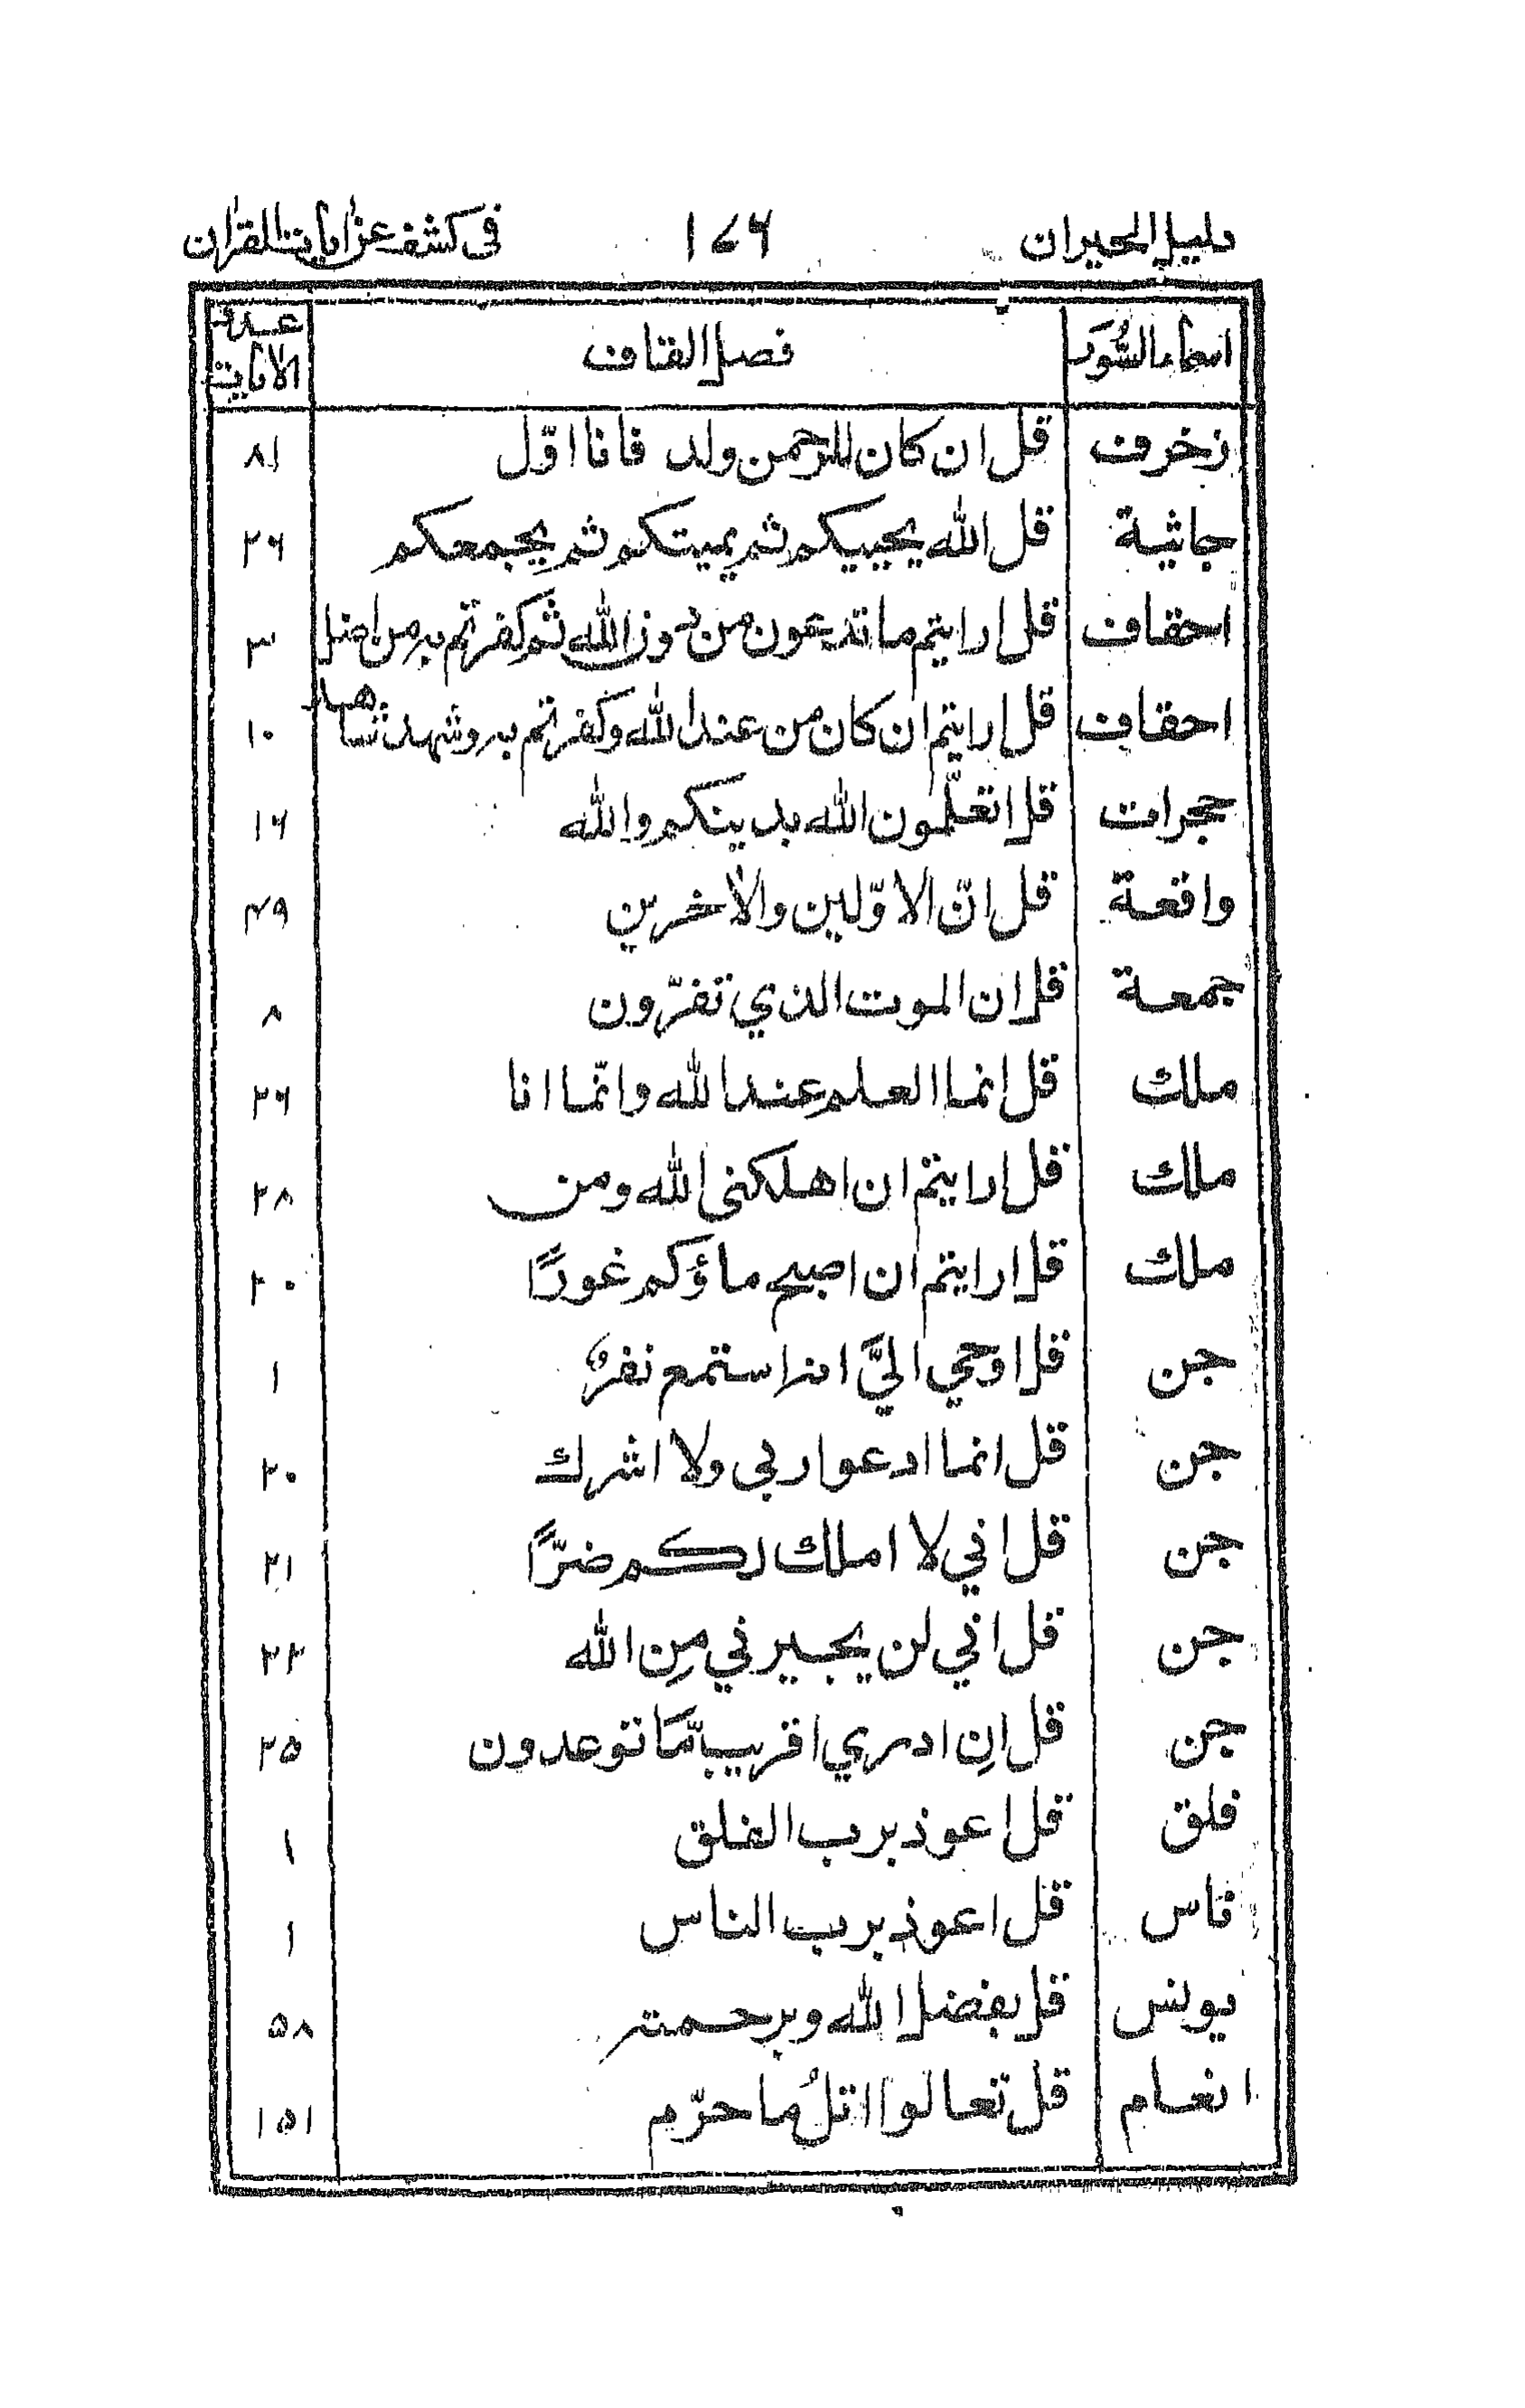 دليل الحيران ١٧٦ في كشف عن ايات القران
اسماء السُّوَر فصل القاف عدد الايات
زخرف قل ان كان للرحمن ولد فانا اوّل ٨١
جاثية قل الله يحييكم ثم يميتكم ثم يجمعكم ٢٦
احقاف قل ارايتم ما تدعون من دون الله ثم كفرتم به من اضل ٣
احقاف قل ارايتم ان كان من عند الله وكفرتم به وشهد شاهد ١٠
حجرات قل اتعلّمون الله بدينكم والله ١٦
واقعة قل انّ الاوّلين والاخرين ٤٩
جمعة قل ان الموت الذي تفرّون ٨
ملك قل انما العلم عند الله وانّما انا ٢٦
ملك قل ارايتم ان اهلكني الله ومن ٢٨
ملك قل ارايتم ان اصبح ماؤكم غورًا ٣٠
جن قل اوحي اليَّ انه استمع نفرٌ ١
جن قل انما ادعوا ربي ولا اشرك ٢٠
جن قل اني لا املك لكم ضرًّا ٢١
جن قل اني لن يجيرني مِن الله ٢٢
جن قل اِن ادري اقريب مّا توعدون ٢٥
فلق قل اعوذ برب الفلق ١
ناس قل اعوذ برب الناس ١
يونس قل بفضل الله وبرحمته ٥٨
انعام قل تعالوا اتلُ ما حرّم ١٥١